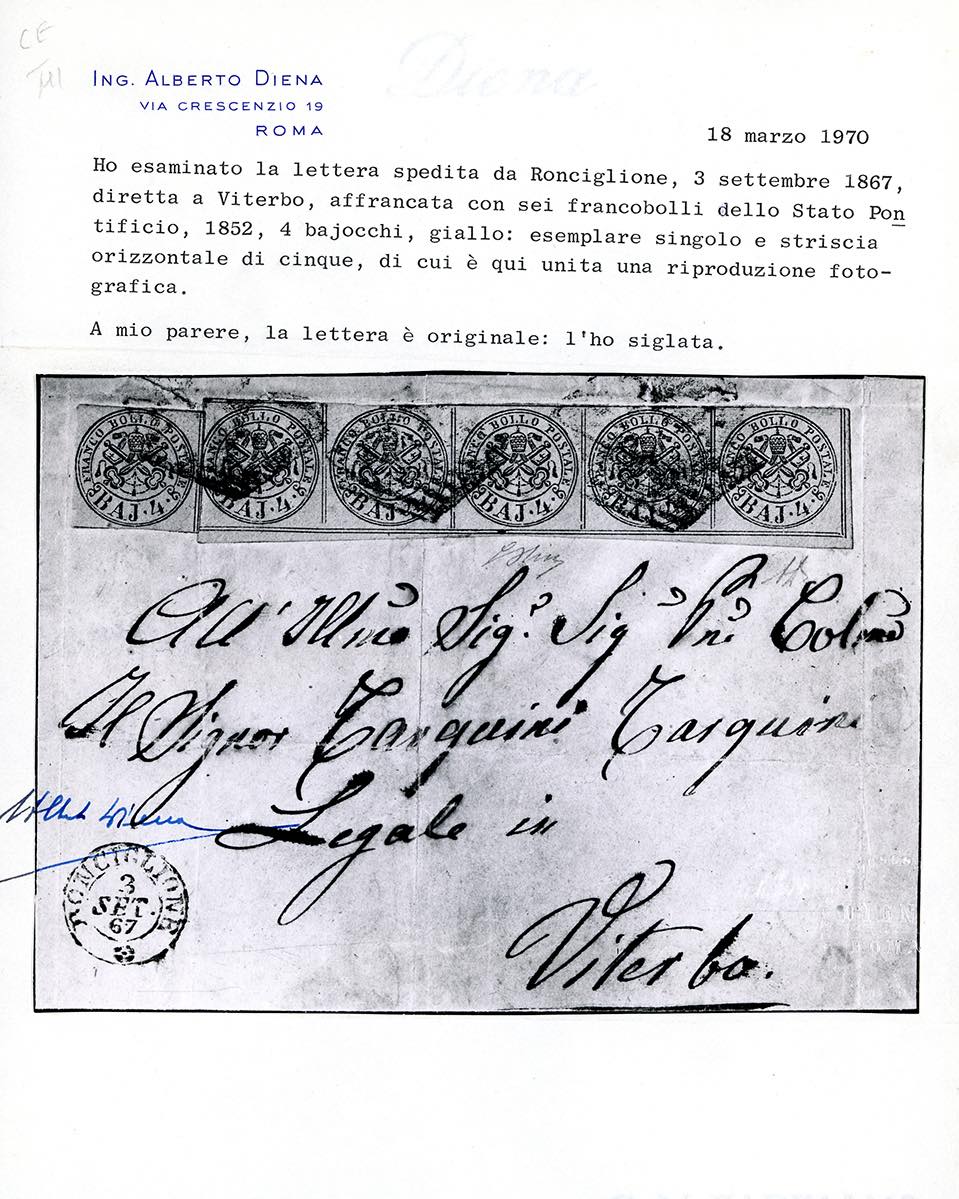 CE
Diena
ING. ALBERTO DIENA
VIA CRESCENZIO 19
ROMA
18 marzo 1970
Ho esaminato la lettera spedita da Ronciglione, 3 settembre 1867,
diretta a Viterbo, affrancata con sei francobolli dello Stato Pon
tificio, 1852, 4 bajocchi, giallo: esemplare singolo e striscia
orizzontale di cinque, di cui è qui unita una riproduzione foto-
grafica.
A mio parere, la lettera è originale: l'ho siglata.
FRANCO BOLLO POSTALE BAJ. 4.
FRANCO BOLLO POSTALE BAJ. 4.
FRANCO BOLLO POSTALE BAJ. 4.
FRANCO BOLLO POSTALE BAJ. 4.
FRANCO BOLLO POSTALE BAJ. 4.
FRANCO BOLLO POSTALE BAJ. 4.
All' Illmo Sig.e Sig Pne Colmo
Il Signor Tarquini Tarquini
Legale in
Alberto Diena
Viterbo.
RONCIGLIONE
3
SET.
67